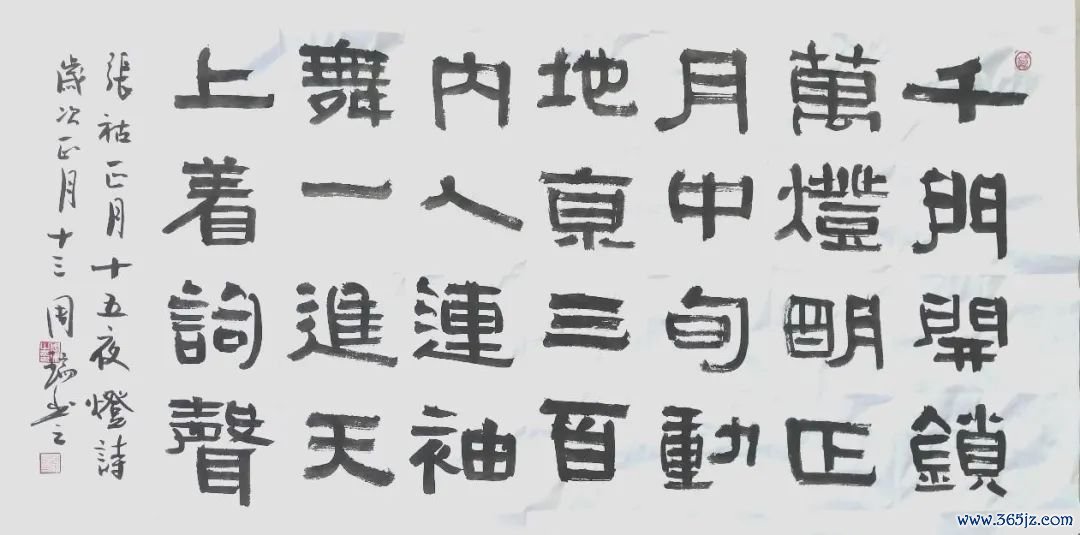 千門開鎖
萬燈明正
月中旬動
地亰三百
内人連袖
舞一進天
上着詞聲
張祜正月十五夜燈詩
歲次正月十三周瑞书之
www.365jz.com